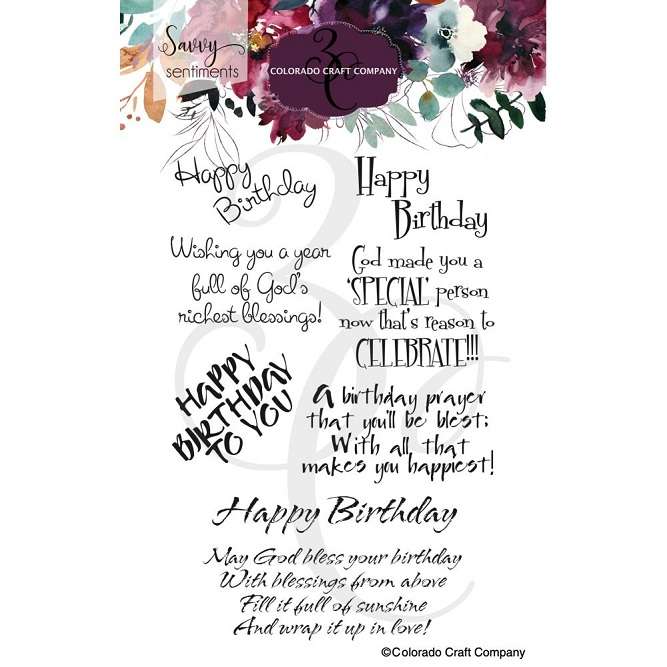 Savvy
sentiments
3C
COLORADO CRAFT COMPANY
Happy
Birthday
Happy
Birthday
Wishing you a year
full of God's
richest blessings!
God made you a
'SPECIAL' person
now that's reason to
CELEBRATE!!!
HAPPY
BIRTHDAY
TO YOU
A birthday prayer
that you'll be blest;
With all that
makes you happiest!
Happy Birthday
May God bless your birthday
With blessings from above
Fill it full of sunshine
And wrap it up in love!
3C
©Colorado Craft Company